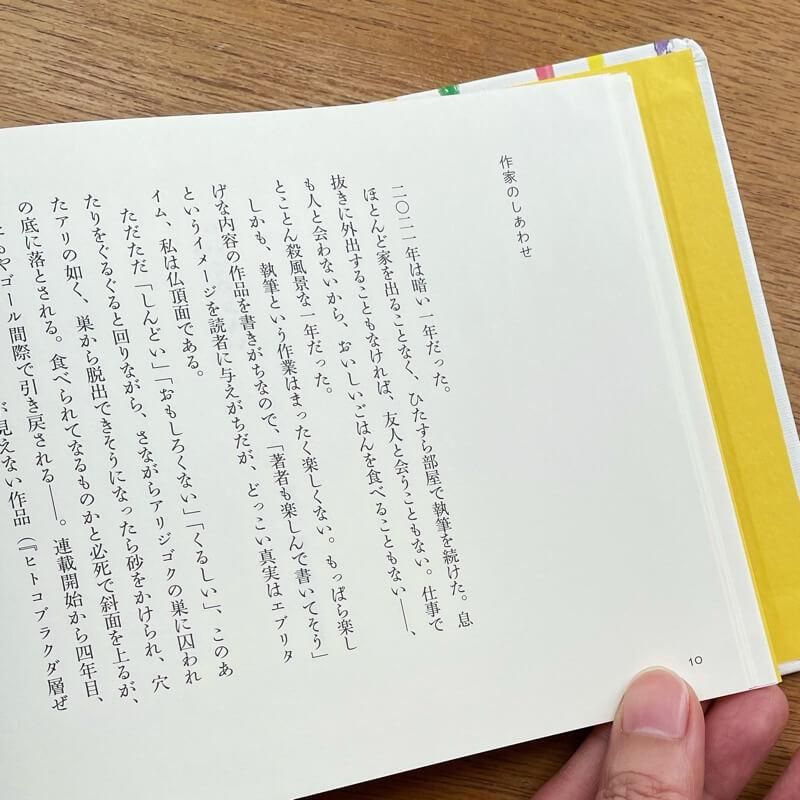 作家のしあわせ
二〇二一年は暗い一年だった。
ほとんど家を出ることなく、ひたすら部屋で執筆を続けた。息
抜きに外出することもなければ、友人と会うこともない。仕事で
も人と会わないから、おいしいごはんを食べることもない――、
とことん殺風景な一年だった。
しかも、執筆という作業はまったく楽しくない。もっぱら楽し
げな内容の作品を書きがちなので、「著者も楽しんで書いてそう」
というイメージを読者に与えがちだが、どっこい真実はエブリタ
イム、私は仏頂面である。
ただただ「しんどい」「おもしろくない」「くるしい」、このあ
たりをぐるぐると回りながら、さながらアリジゴクの巣に囚われ
たアリの如く、巣から脱出できそうになったら砂をかけられ、穴
の底に落とされる。食べられてなるものかと必死で斜面を上るが、
やゴール間際で引き戻される――。連載開始から四年目、
見えない作品（『ヒトコブラクダ層ぜ
10